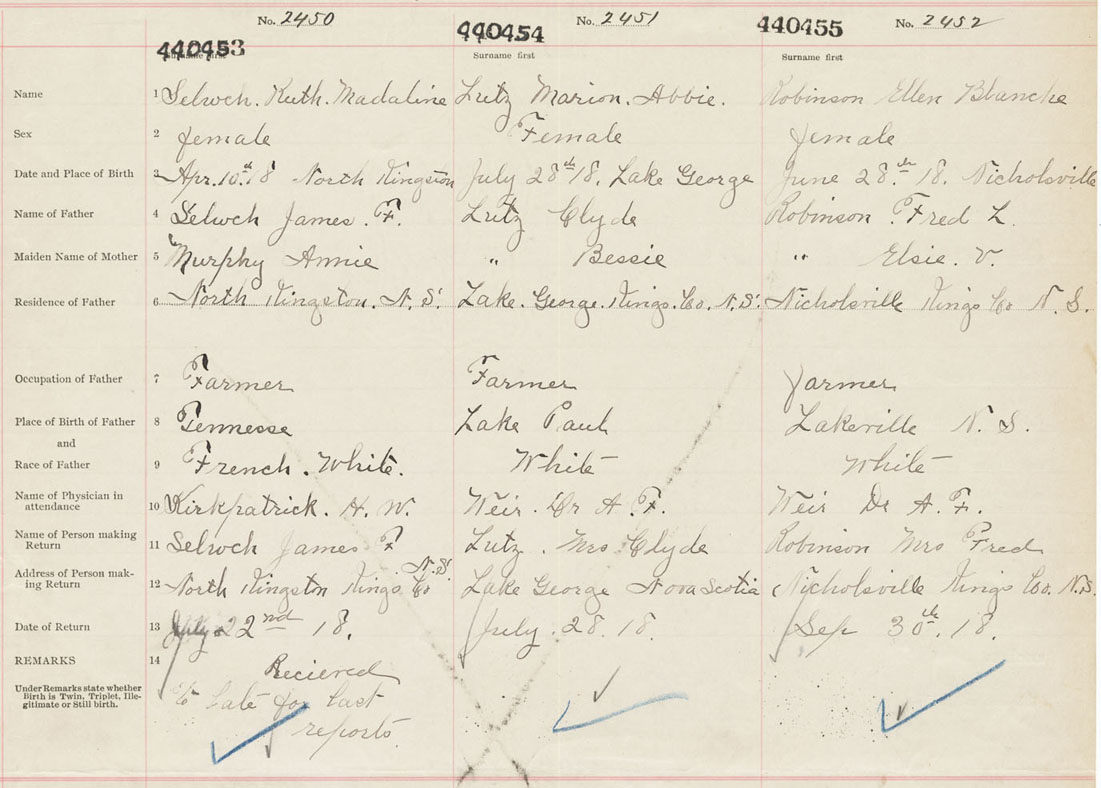 No. 2450 No. 2451 No. 2452
440453 440454 440455
Surname first Surname first Surname first
Name 1 Selwch. Ruth. Madaline Lutz Marion. Abbie. Robinson Ellen Blanche
Sex 2 female Female female
Date and Place of Birth 3 Apr. 10th 18 North Kingston July 28th 18. Lake George June 28th 18. Nicholsville
Name of Father 4 Selwch James. F. Lutz Clyde Robinson. Fred L.
Maiden Name of Mother 5 Murphy Annie " Bessie " Elsie. V.
Residence of Father 6 North Kingston. N.S. Lake. George. Kings. Co. N.S. Nicholsville Kings Co N.S.
Occupation of Father 7 Farmer Farmer farmer
Place of Birth of Father 8 Tennesse Lake Paul Lakeville N.S.
and
Race of Father 9 French. White. White White
Name of Physician in
attendance 10 Kirkpatrick. H. W. Weir. Dr A. F. Weir Dr A. F.
Name of Person making
Return 11 Selwch James F Lutz. Mrs Clyde Robinson Mrs Fred
Address of Person mak-
ing Return 12 North Kingston Kings Co N.S. Lake George Nova Scotia Nicholsville Kings Co. N.S.
Date of Return 13 July 22nd 18. July. 28. 18. Sep 30th. 18.
REMARKS 14 Recieved
Under Remarks state whether
Birth is Twin, Triplet, Ille-
gitimate or Still birth.
to late for last
reports